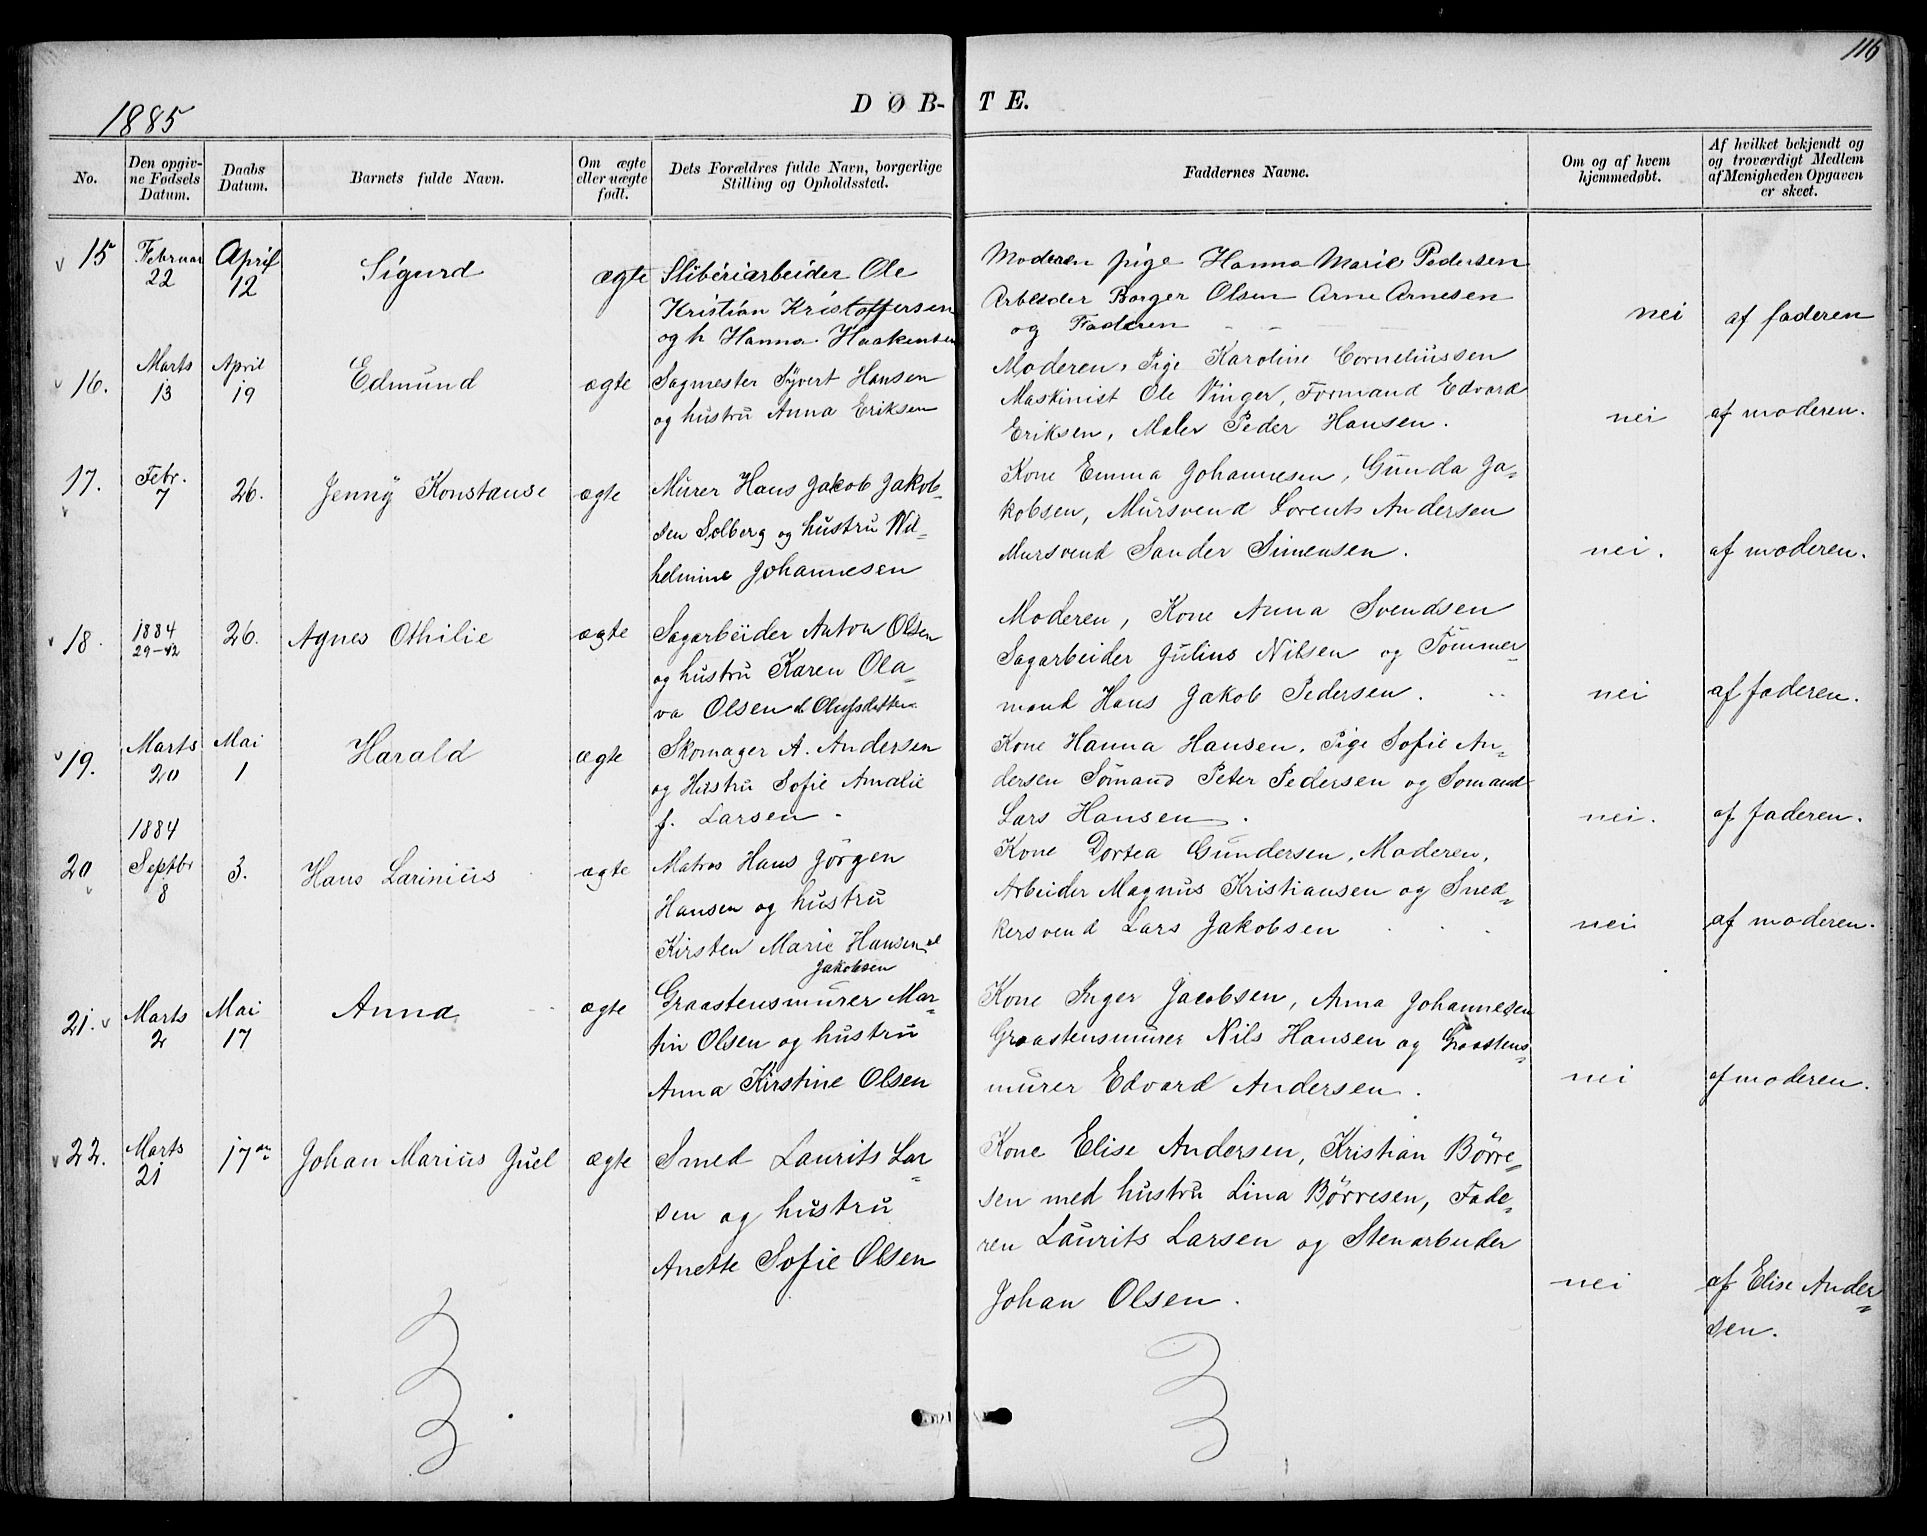 116
1885
DØB-TE.
No.
Den opgivne Fødsels Datum.
Daabs Datum.
Barnets fulde Navn.
Om ægte eller uægte født.
Dets Forældres fulde Navn, borgerlige Stilling og Opholdssted.
Faddernes Navne.
Om og af hvem hjemmedøbt.
Af hvilket bekjendt og og troværdigt Medlem af Menigheden Opgaven er skeet.
15 Februar 22 April 12 Sigurd ægte
Sliberiarbeider Ole
Kristian Kristoffersen
og h Hanna Haakensen
Moderen pige Hanna Marie Pedersen
Arbeider Borger Olsen Arne Arnesen
og Faderen
nei af faderen
16. Marts 13 April 19 Edmund ægte
Sagmester Syvert Hansen
og hustru Anna Eriksen
Moderen, Pige Karoline Corneliussen
Maskinist Ole Vinger, Formand Edvard
Eriksen, Maler Peder Hansen.
nei af moderen.
17. Febr. 7 26. Jenny Konstanse ægte
Murer Hans Jakob Jakob-
sen Solberg og hustru Wil-
helmine Johannesen
Kone Emma Johannesen, Gunda Ja-
kobsen, Mursvend Lorents Andersen
Mursvend Sander Simensen.
nei. af moderen.
18. 1884 29-12 26. Agnes Othilie ægte
Sagarbeider Anton Olsen
og hustru Karen Ola-
va Olsen el Olufsdatter
Moderen, Kone Anna Svendsen
Sagarbeider Julius Nilsen og Tømmer-
mand Hans Jakob Pedersen.
nei af faderen.
19. Marts 20 Mai 1 Harald ægte
Skomager A. Andersen
og Hustru Sofie Amalie
f. Larsen
Kone Hanna Hansen, Pige Sofie An-
dersen Sømand Peter Pedersen og Sømand
Lars Hansen.
nei. af faderen.
20 1884 Septbr 8 3. Hans Larinius ægte
Matros Hans Jørgen
Hansen og hustru
Kirsten Marie Hansen el
Jakobsen
Kone Dortea Gundersen, Moderen,
Arbeider Magnus Kristiansen og Sned-
kersvend Lars Jakobsen
nei af moderen.
21. Marts 2 Mai 17 Anna ægte
Graastensmurer Mar-
tin Olsen og hustru
Anna Kirstine Olsen
Kone Inger Jacobsen, Anna Johannesen
Graastensmurer Nils Hansen og Graastens-
murer Edvard Andersen.
nei af moderen.
22. Marts 21 17 Johan Marius Juel ægte
Smed Laurits Lar-
sen og hustru
Anette Sofie Olsen
Kone Elise Andersen, Kristian Børre-
sen med hustru Lina Børresen, Fade-
ren Laurits Larsen og Stenarbeider
Johan Olsen.
nei af Elise Ander-
sen.